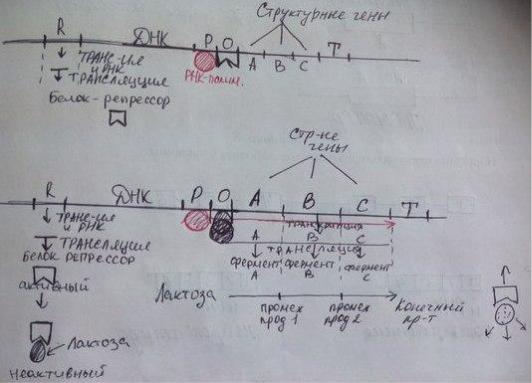 Структурные гены
R ДНК P O A B C T
ТРАНС-ИЯ
и РНК
ТРАНСЛЯЦИЯ
РНК-полим.
Белок-репрессор
Стр-не
гены
R ДНК P O A B C T
ТРАНС-ИЯ
и РНК
транскрипция
A B C
ТРАНСЛЯЦИЯ
ТРАНСЛЯЦИЯ
БЕЛОК РЕПРЕССОР
фермент фермент фермент
A B C
активный
Лактоза
Конечный
пр-т
промеж
прод 1
промеж
прод 2
Лактоза
неактивный